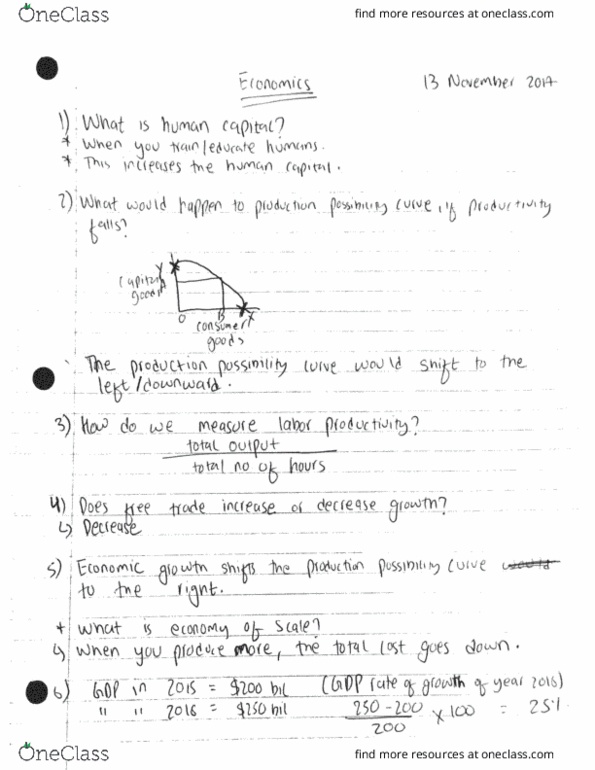 OneClass
find more resources at oneclass.com
Economics
13 November 2017
1) What is human capital?
* When you train/educate humans.
* This increases the human capital.
2) What would happen to production possibility curve, if productivity
falls?
Y
capital
goods
O B X
consumer
goods
The production possibility curve would shift to the
left/downward.
3) How do we measure labor productivity?
total output
total no of hours
4) Does free trade increase or decrease growth?
↳ Decrease
5) Economic growth shifts the production possibility curve would
to the right.
* What is economy of scale?
↳ When you produce more, the total cost goes down.
6) GDP in 2015 = $200 bil (GDP rate of growth of year 2016)
" " 2016 = $250 bil 250-200 × 100 = 25%
200
OneClass
find more resources at oneclass.com